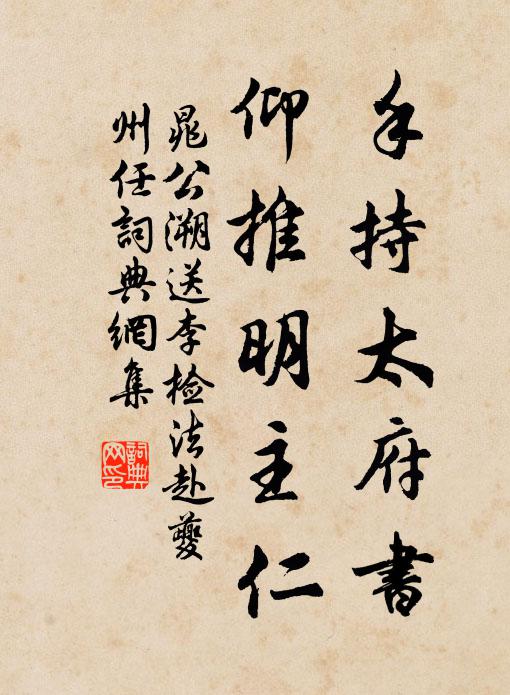 手持太府書
仰推明主仁
晁公溯送李檢法赴夔
州任詞典網集
詞典
网印